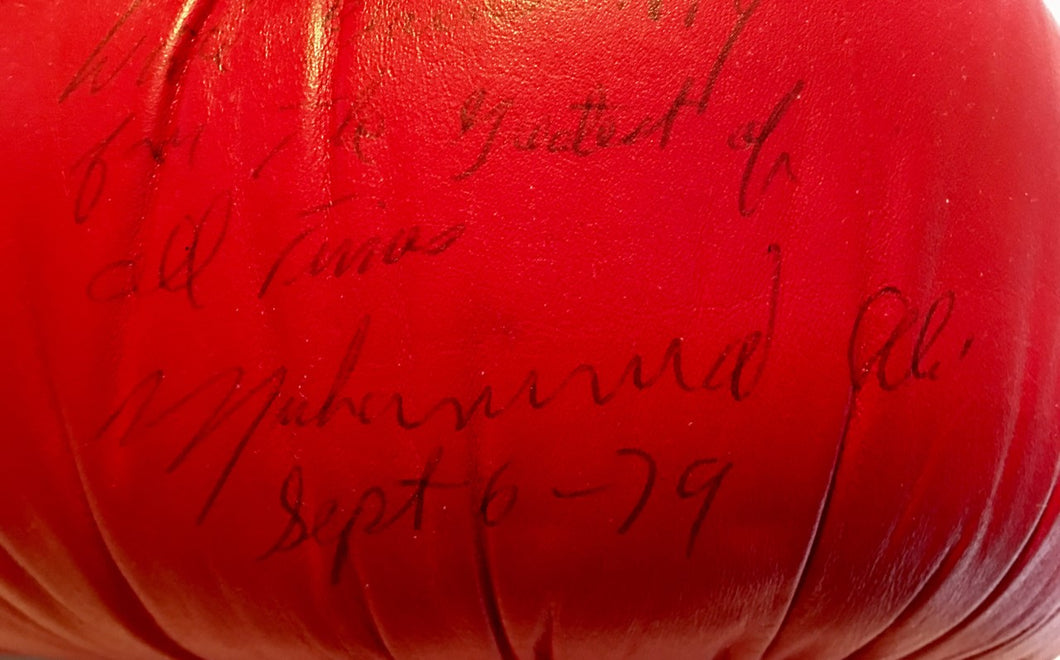 from the greatest of
all times
Muhammad Ali
Sept 6-79